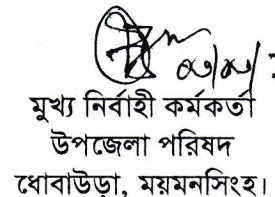 মুখ্য নির্বাহী কর্মকর্তা
উপজেলা পরিষদ
ধোবাউড়া, ময়মনসিংহ।